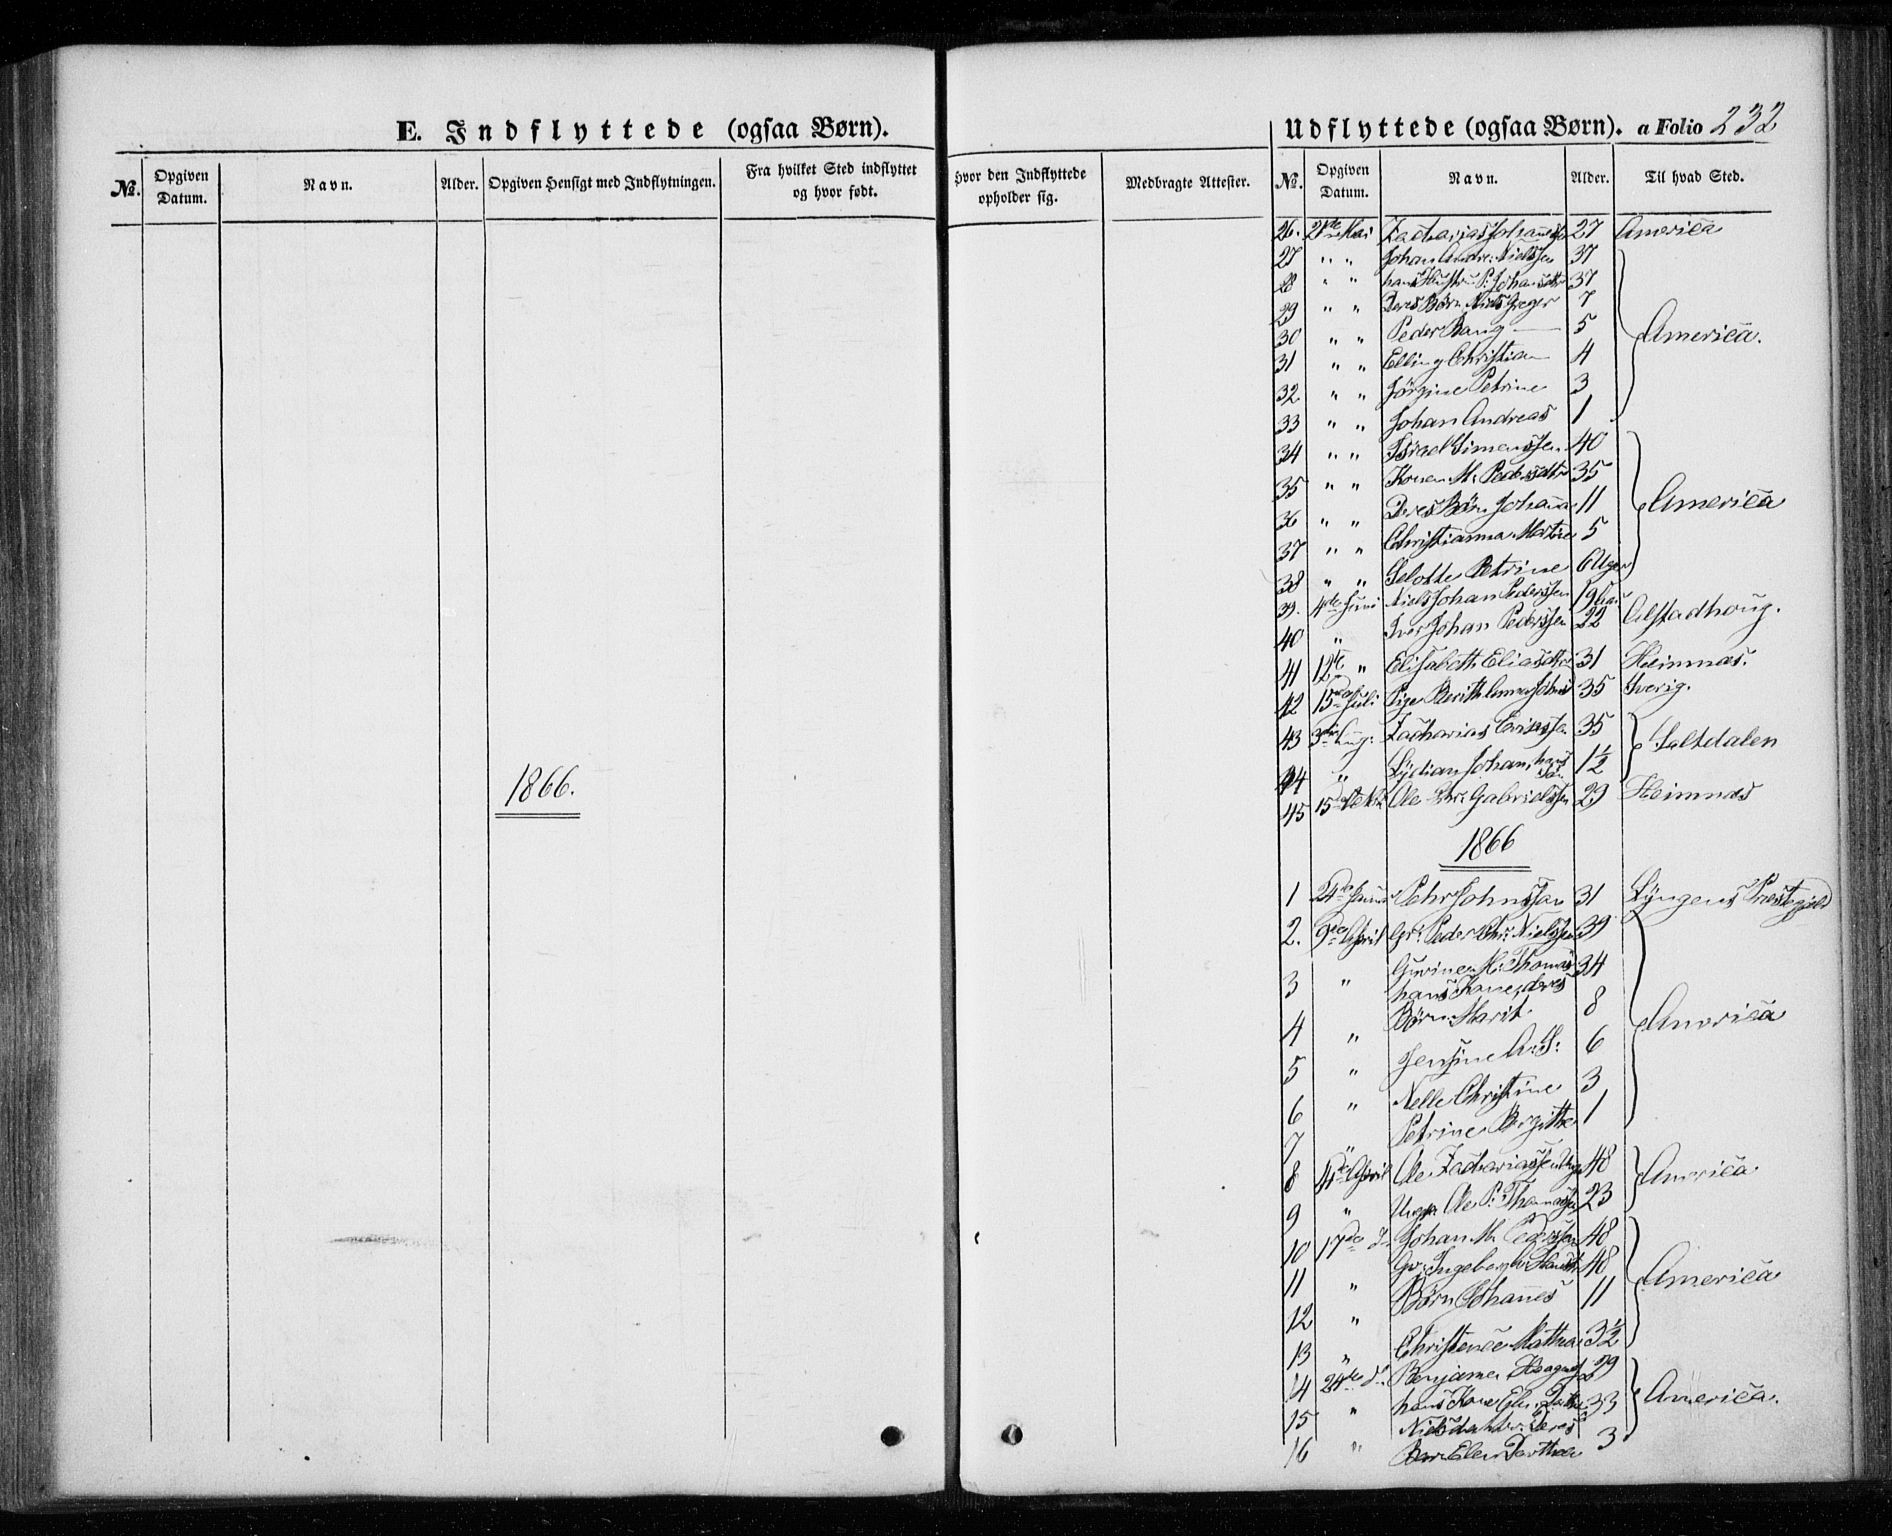 E. Indflyttede (ogsaa Børn).
Udflyttede (ogsaa Børn). a Folio 232
No. Opgiven Datum. Navn. Alder. Opgiven Hensigt med Indflytningen. Fra hvilket Sted indflyttet og hvor født.
hvor den Indflyttede opholder sig. Medbragte Attester. No. Opgiven Datum. Navn. Alder. Til hvad Sted.
26. Mai Zacharias 27 America
27 " " Johan Andr. Nielssen 37
28 " " hans Hustru P. Johansdtr 37
29 " " Deres Børn Niels Greger 7
30 " " Peder Bang 5 America.
31 " " Elling Christian 4
32 " " Jörgine Petrine 3
33 " " Johan Andreas 1
34 " " Israel Simenssen 40
35 " " Konen M. Pedersdtr 35
36 " " Deres Børn Johanna 11 America
37 " " Christianna 5
38 " " Petrine 6 Uger
39. 4de Juni Niels Johan Pederssen 19
40 " Iver Johan Pederssen 22 Alstadhoug.
41 12te " Elisabeth Eliasdtr 31 Hemnæs.
42 15de Juli Pige Berith Anna 35 Sverig.
43 3die Aug. Zacharias 35
44 " Lydian Johan, hans Søn 1½ Saltdalen
45 15de Ole Chr. Gabrielssen 29 Hemnæs
1866.
1866
1 24de Pehr Johnssen 31 Lyngens Præstegjeld
2. 9de April Gr. Peder Chr. Nielssen 39
3 " M. Thomas 34
hans Kone, deres
4 " Børn Marit 8 America
5 " Jensine A. S. 6
6 " Nelle Christine 3
7 " Petrine Birgitte 1
8 April Ole Zachariassen 48 America
9 " Ungk. Ole P. Thomassen 23
10 17de Johan M. Pederssen 48
11 " Ingeborg 48
12 " Børn Johannes 11 America
13 " Mathea 3½
14 24de Benjamin 29
15 " hans Kone 33 America.
Nielsdatter. Deres
16 " Barn Elen Dorthea 3